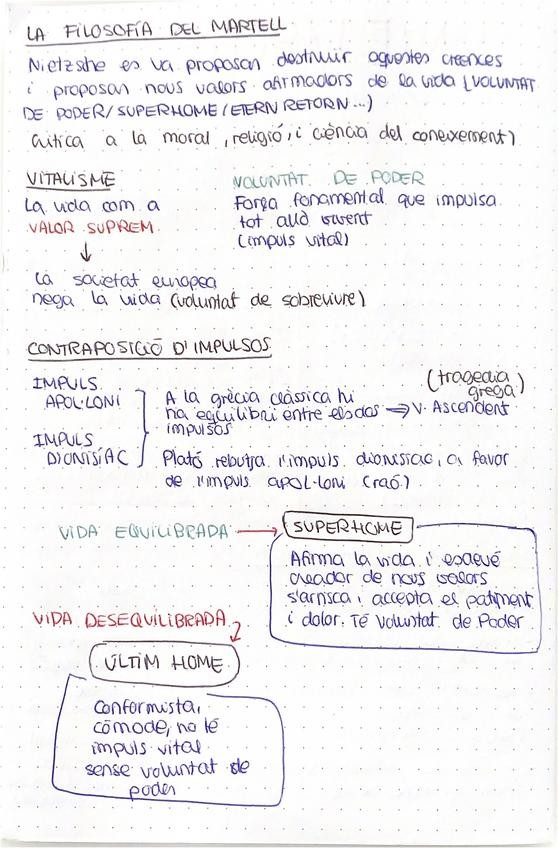 LA FILOSOFÍA DEL MARTELL
Nietzshe es va proposan destruir aquestes creences
i proposan nous valors afirmadors de la vida (VOLUNTAT
DE PODER/SUPERHOME/ETERN RETORN...)
Crítica a la moral, religió, i ciència del coneixement)
VITALISME
La vida com a
VALOR SUPREM
↓
La societat europea
nega la vida (voluntat de sobreviure)
VOLUNTAT DE PODER
Força fonamental que impulsa
tot allò vivent
(impuls vital)
CONTRAPOSICIÓ D'IMPULSOS
IMPULS
APOL·LONI
IMPULS
DIONISÍAC
A la grècia clàssica hi
ha equilibri entre els dos ⇒ V. Ascendent
impulsos
(tragedia
grega)
Plató rebutja l'impuls dionisíac, a favor
de l'impuls APOL·loni (raó)
VIDA EQUILIBRADA → SUPERHOME
Afirma la vida i esdevé
creador de nous valors
s'arrisca i accepta el patiment
i dolor. Té voluntat de Poder
VIDA DESEQUILIBRADA
ÚLTIM HOME
Conformista,
còmode, no té
impuls vital
sense voluntat de
poder